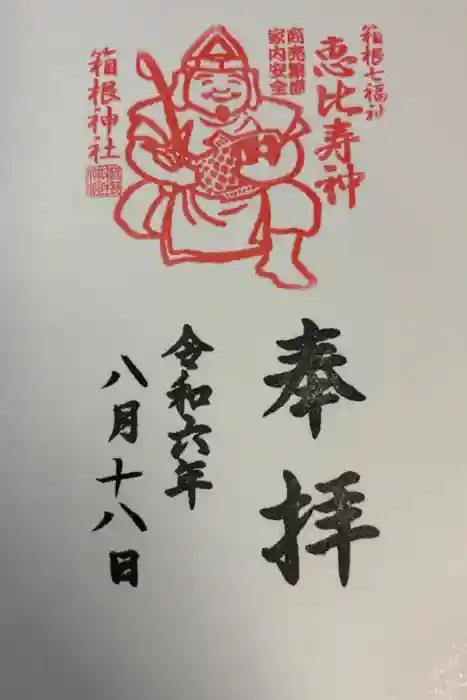 箱根七福神
恵比寿神
商売繁昌
家内安全
箱根神社
奉拝
令和六年
八月十八日